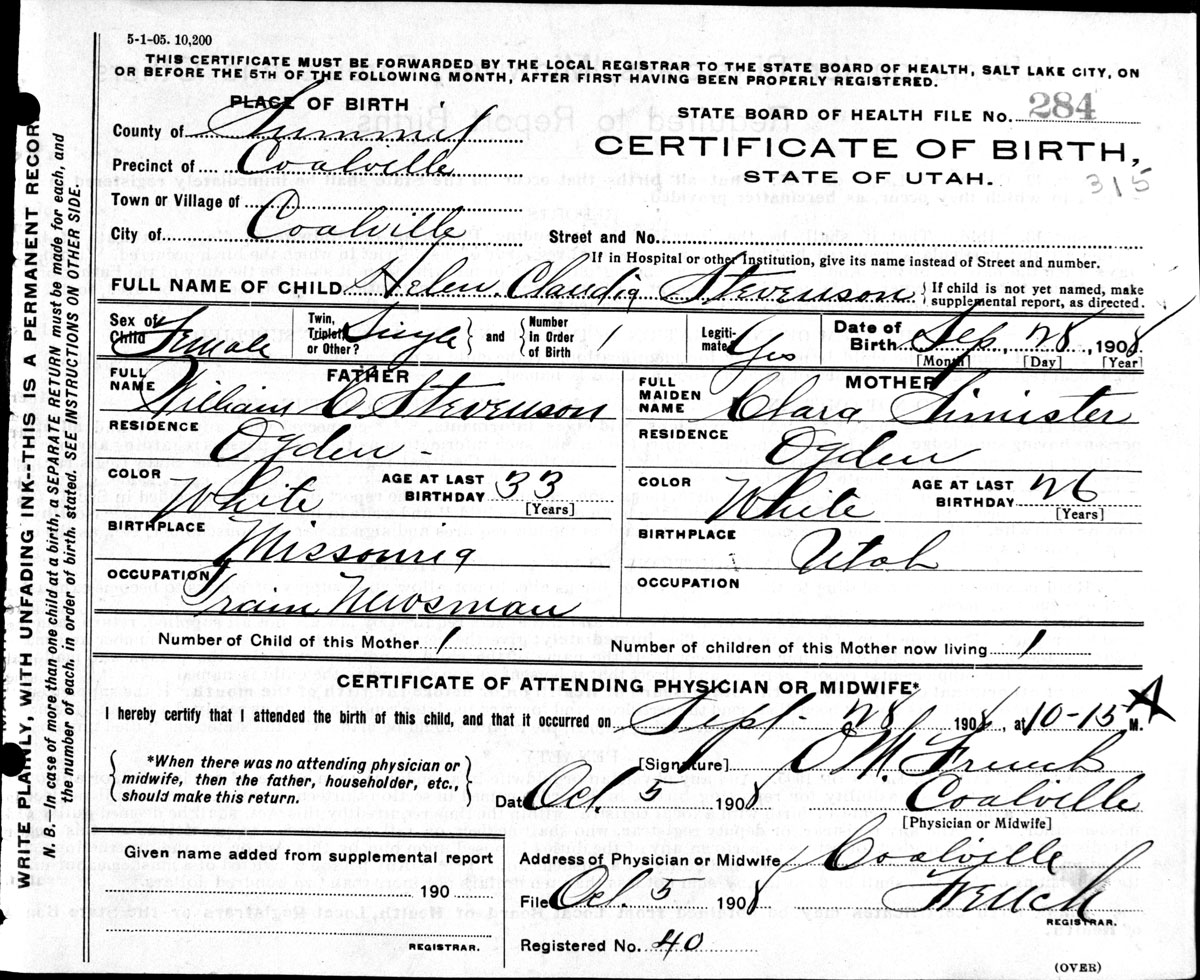 5-1-05. 10,200
THIS CERTIFICATE MUST BE FORWARDED BY THE LOCAL REGISTRAR TO THE STATE BOARD OF HEALTH, SALT LAKE CITY, ON
OR BEFORE THE 5TH OF THE FOLLOWING MONTH, AFTER FIRST HAVING BEEN PROPERLY REGISTERED.
PLACE OF BIRTH
STATE BOARD OF HEALTH FILE No. 284
County of Summit
CERTIFICATE OF BIRTH,
Precinct of Coalville
STATE OF UTAH.
315
Town or Village of
City of Coalville
Street and No.
If in Hospital or other Institution, give its name instead of Street and number.
FULL NAME OF CHILD Helen Claudia Stevenson { If child is not yet named, make supplemental report, as directed.
Sex of Child Female Twin, Triplet, or Other? Single } and { Number in Order of Birth 1 Legitimate? Yes Date of Birth Sep. 28, 1908
[Month] [Day] [Year]
FATHER
FULL NAME William C. Stevenson
RESIDENCE Ogden
COLOR White AGE AT LAST BIRTHDAY 33 [Years]
BIRTHPLACE Missouria
OCCUPATION Train Newsman
MOTHER
FULL MAIDEN NAME Clara Simister
RESIDENCE Ogden
COLOR White AGE AT LAST BIRTHDAY 26 [Years]
BIRTHPLACE Utah
OCCUPATION
Number of Child of this Mother 1 Number of children of this Mother now living 1
CERTIFICATE OF ATTENDING PHYSICIAN OR MIDWIFE*
I hereby certify that I attended the birth of this child, and that it occurred on Sept. 28 1908, at 10-15 A M.
{ *When there was no attending physician or midwife, then the father, householder, etc., should make this return. }
[Signature] French
Date Oct. 5 1908 Coalville
[Physician or Midwife]
Given name added from supplemental report
190
REGISTRAR.
Address of Physician or Midwife Coalville
Filed Oct. 5 1908 French
REGISTRAR.
Registered No. 40
(OVER)
WRITE PLAINLY, WITH UNFADING INK--THIS IS A PERMANENT RECORD
N. B.--In case of more than one child at a birth, a SEPARATE RETURN must be made for each, and
the number of each, in order of birth, stated. SEE INSTRUCTIONS ON OTHER SIDE.